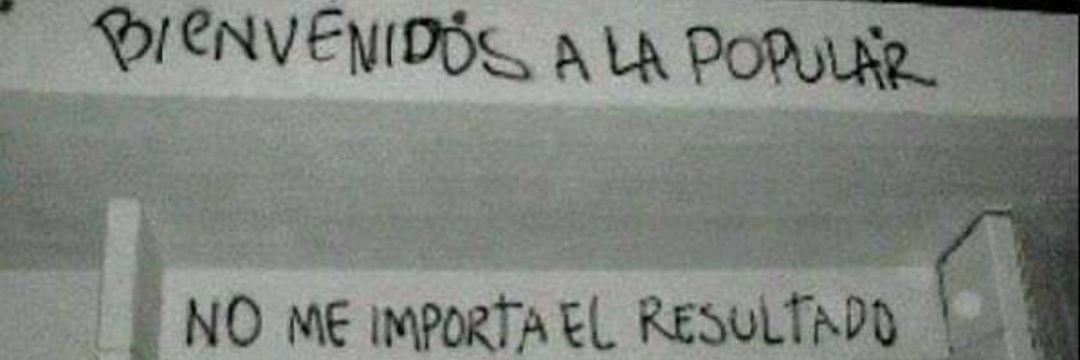 BIENVENIDOS A LA POPULAR
NO ME IMPORTA EL RESULTADO